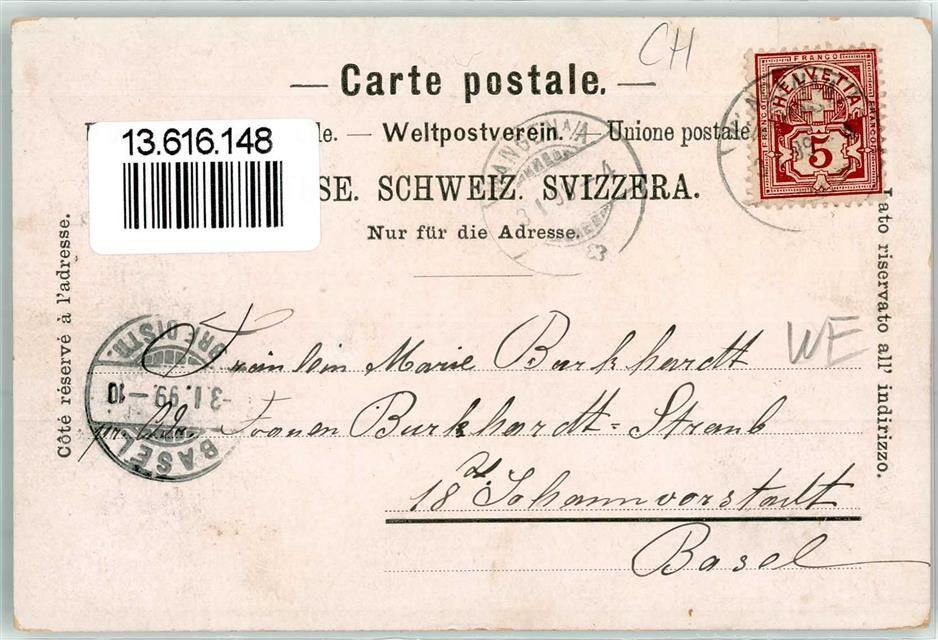 CH
— Carte postale. —
13.616.148
le. — Weltpostverein. — Unione postale
SE. SCHWEIZ. SVIZZERA.
Nur für die Adresse.
FRANCO
HELVETIA
5
Côté réservé à l'adresse.
lato riservato all' indirizzo.
WE
BASEL
-3.I.99.-10
BRF.DISTR.
Fräulein Marie Burkhardt
pr. Adr. Frauen Burkhardt-Straub
18 St. Johannvorstadt
Basel